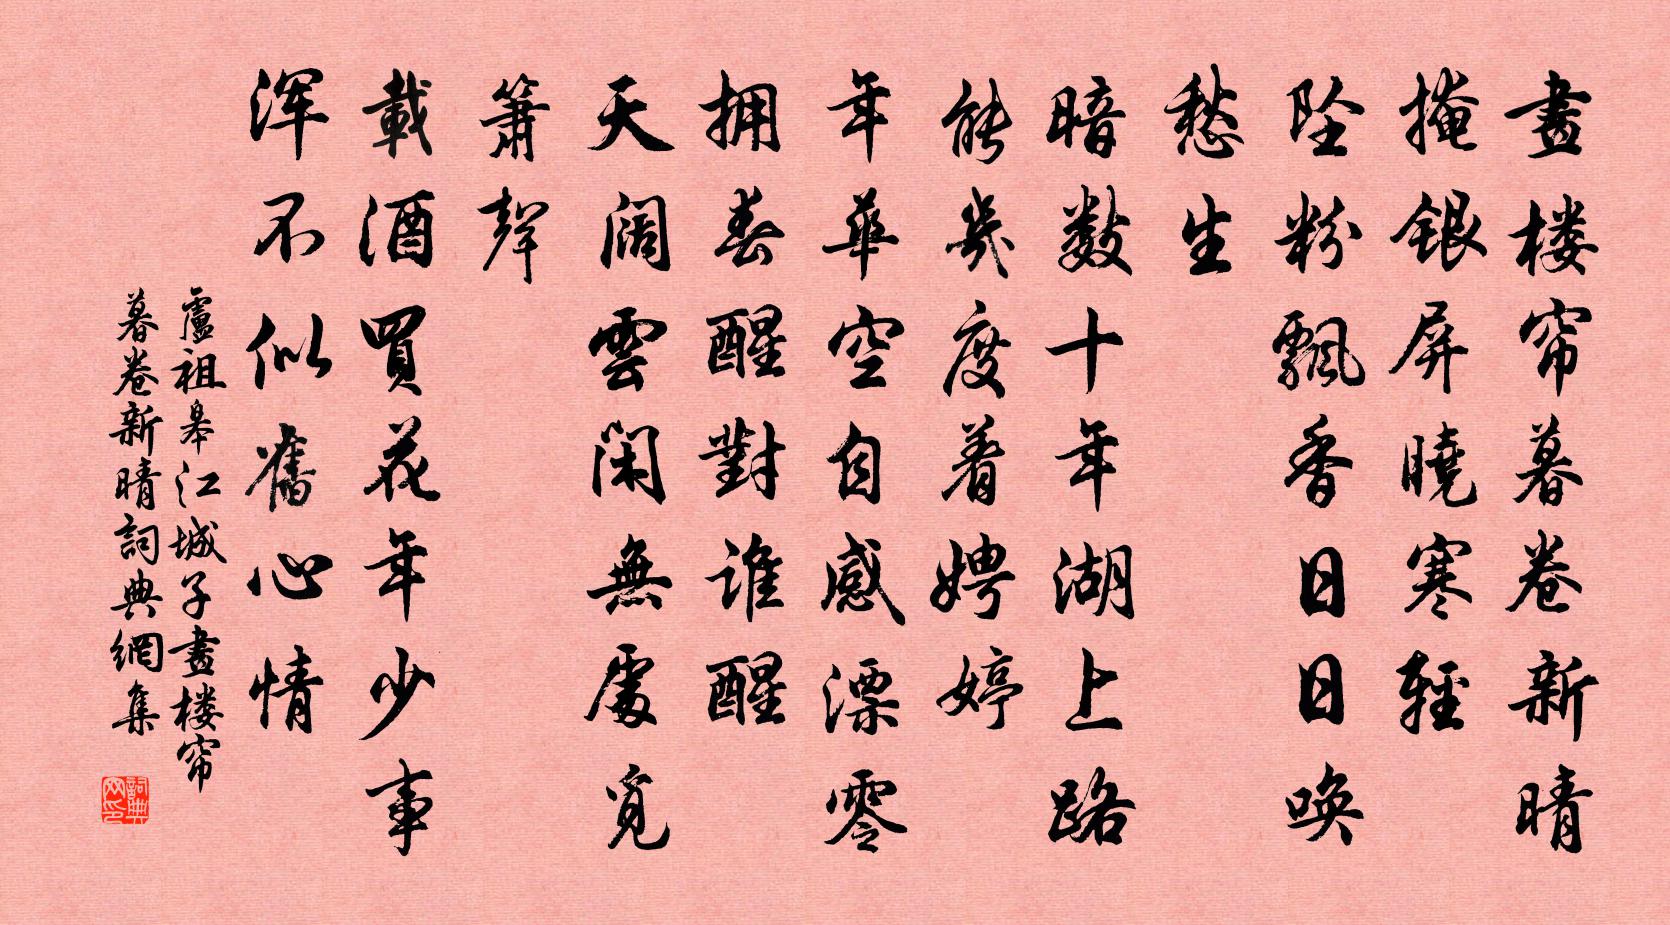 畫楼帘暮卷新晴
掩銀屏曉寒輕
坠粉飄香日日唤
愁生
暗数十年湖上路
能幾度着娉婷
年華空自感漂零
拥春醒對谁醒
天阔雲闲無處觅
簫聲
載酒買花年少事
浑不似舊心情
盧祖皋江城子畫楼帘
暮卷新晴詞典網集
詞典
网印